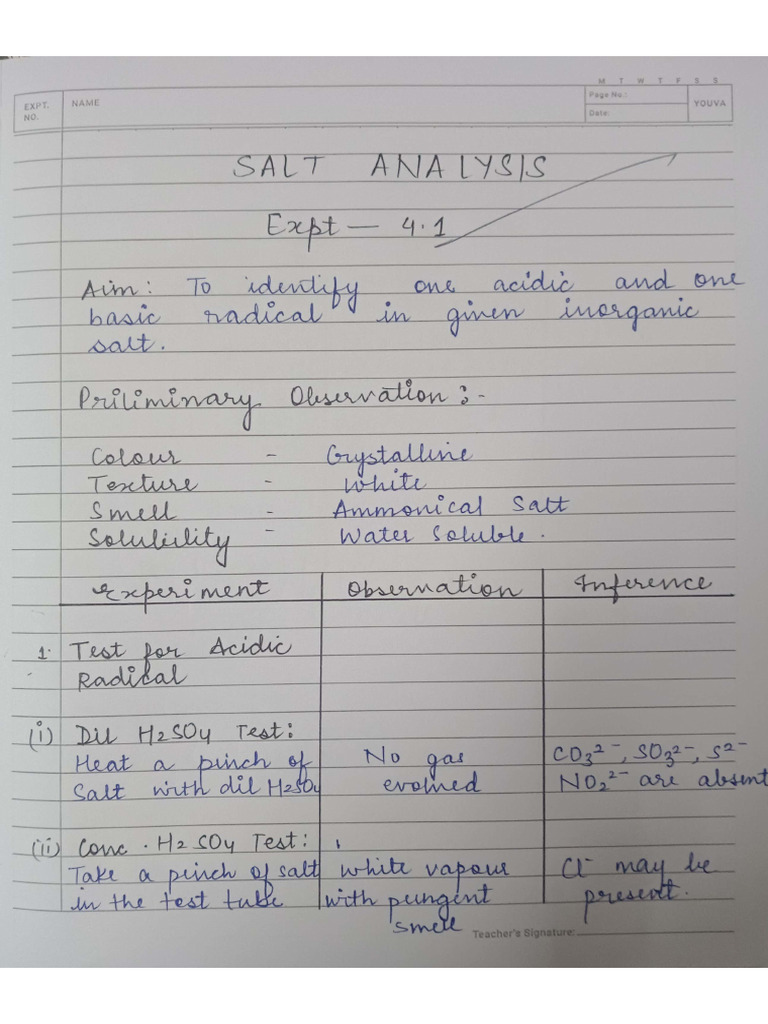 M T W T F S S
EXPT. NO.
NAME
Page No.:
Date:
YOUVA
SALT ANALYSIS
Expt — 4.1
Aim: To identify one acidic and one
basic radical in given inorganic
salt.
Priliminary Observation :-
Colour - Crystalline
Texture - White
Smell - Ammonical Salt
Solubility - Water Soluble.
Experiment Observation Inference
1. Test for Acidic
Radical
(i) Dil H2SO4 Test:
Heat a pinch of No gas CO3²⁻, SO3²⁻, S²⁻
Salt with dil H2SO4 evolved NO2²⁻ are absent
(ii) Conc. H2SO4 Test:
Take a pinch of salt white vapour Cl⁻ may be
in the test tube with pungent present.
smell
Teacher's Signature: